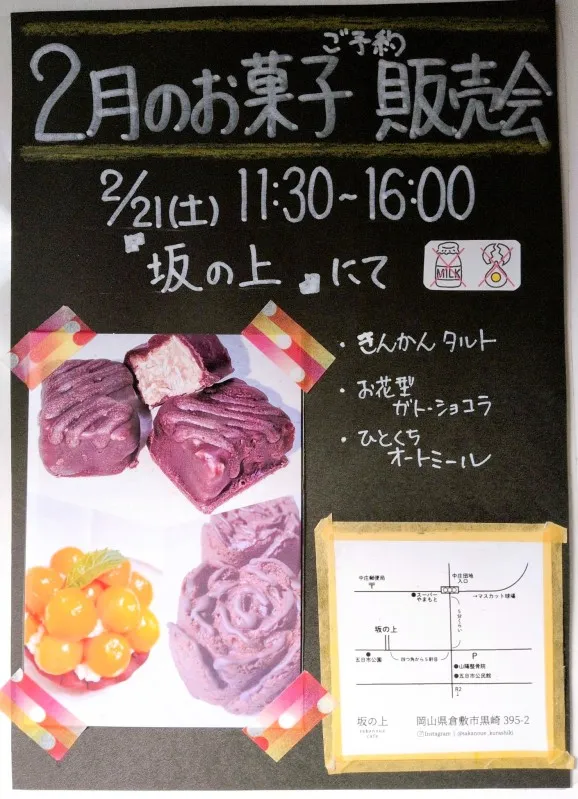 ご予約
2月のお菓子 販売会
2/21(土) 11:30~16:00
『坂の上』にて
MILK
・きんかんタルト
・お花型
ガトーショコラ
・ひとくち
オートミール
中庄郵便局
〒
中庄団地
入口
●スーパー
やまもと
→マスカット球場
坂の上
五日市公園
四つ角から5軒目
P
●山陽整骨院
●五日市公民館
R2
↓
坂の上
sakanoue
cafe
岡山県倉敷市黒崎 395-2
Instagram | @sakanoue_kurashiki